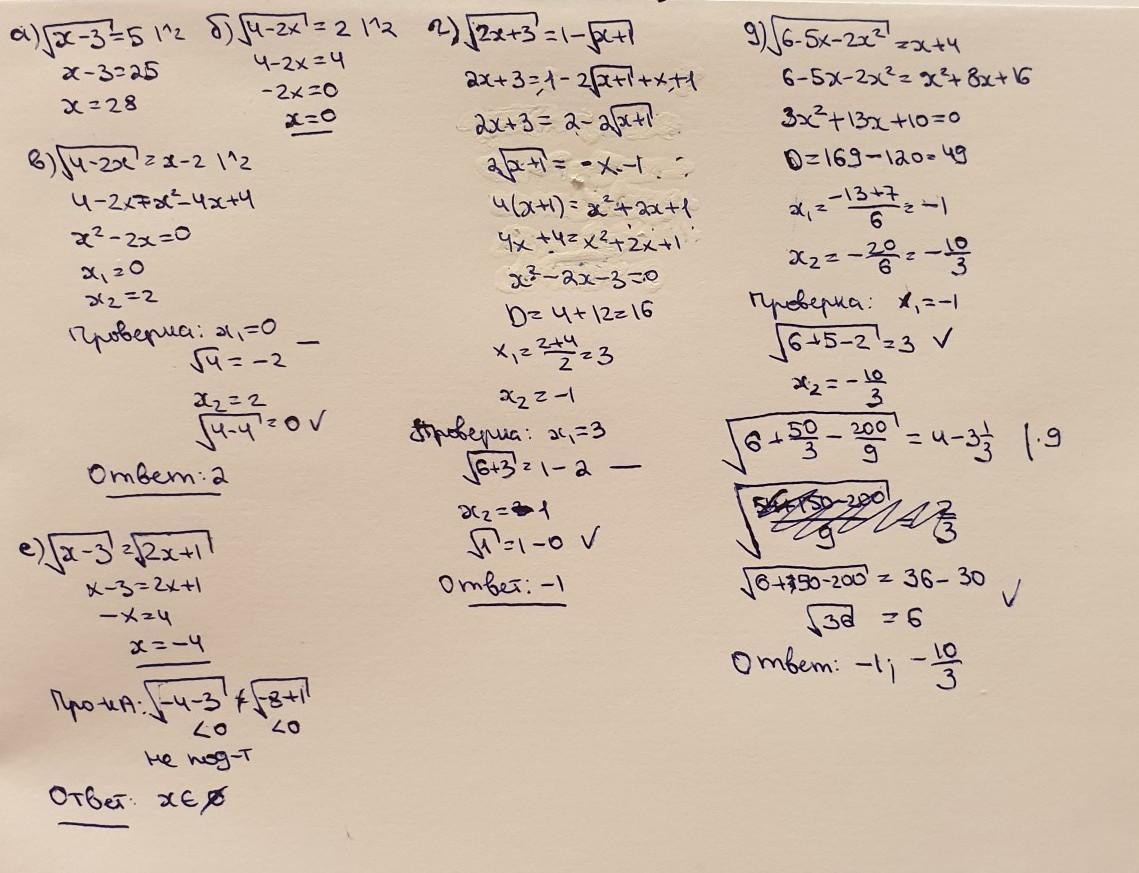 а) √(x-3) = 5 |^2
x-3=25
x=28
б) √(4-2x) = 2 |^2
4-2x=4
-2x=0
x=0
в) √(4-2x) = x-2 |^2
4-2x=x²-4x+4
x²-2x=0
x₁=0
x₂=2
Проверка: x₁=0
√4 = -2 —
x₂=2
√(4-4) = 0 ✓
Ответ: 2
е) √(x-3) = √(2x+1)
x-3=2x+1
-x=4
x=-4
Про-кА: √(-4-3) ≠ √(-8+1)
<0 <0
не под-т
Ответ: x∈∅
г) √(2x+3) = 1-√(x+1)
2x+3=1-2√(x+1)+x+1
2x+3=2-2√(x+1)
2√(x+1) = -x-1
4(x+1)=x²+2x+1
4x+4=x²+2x+1
x²-2x-3=0
D=4+12=16
x₁=(2+4)/2=3
x₂=-1
Проверка: x₁=3
√(6+3) = 1-2 —
x₂=-1
√1 = 1-0 ✓
Ответ: -1
д) √(6-5x-2x²) = x+4
6-5x-2x²=x²+8x+16
3x²+13x+10=0
D=169-120=49
x₁=(-13+7)/6=-1
x₂=-20/6=-10/3
Проверка: x₁=-1
√(6+5-2) = 3 ✓
x₂=-10/3
√(6+50/3-200/9) = 4-3 1/3 |·9
√((54+150-200)/9) = 2/3
√(6+150-200) = 36-30 ✓
√36 = 6
Ответ: -1; -10/3